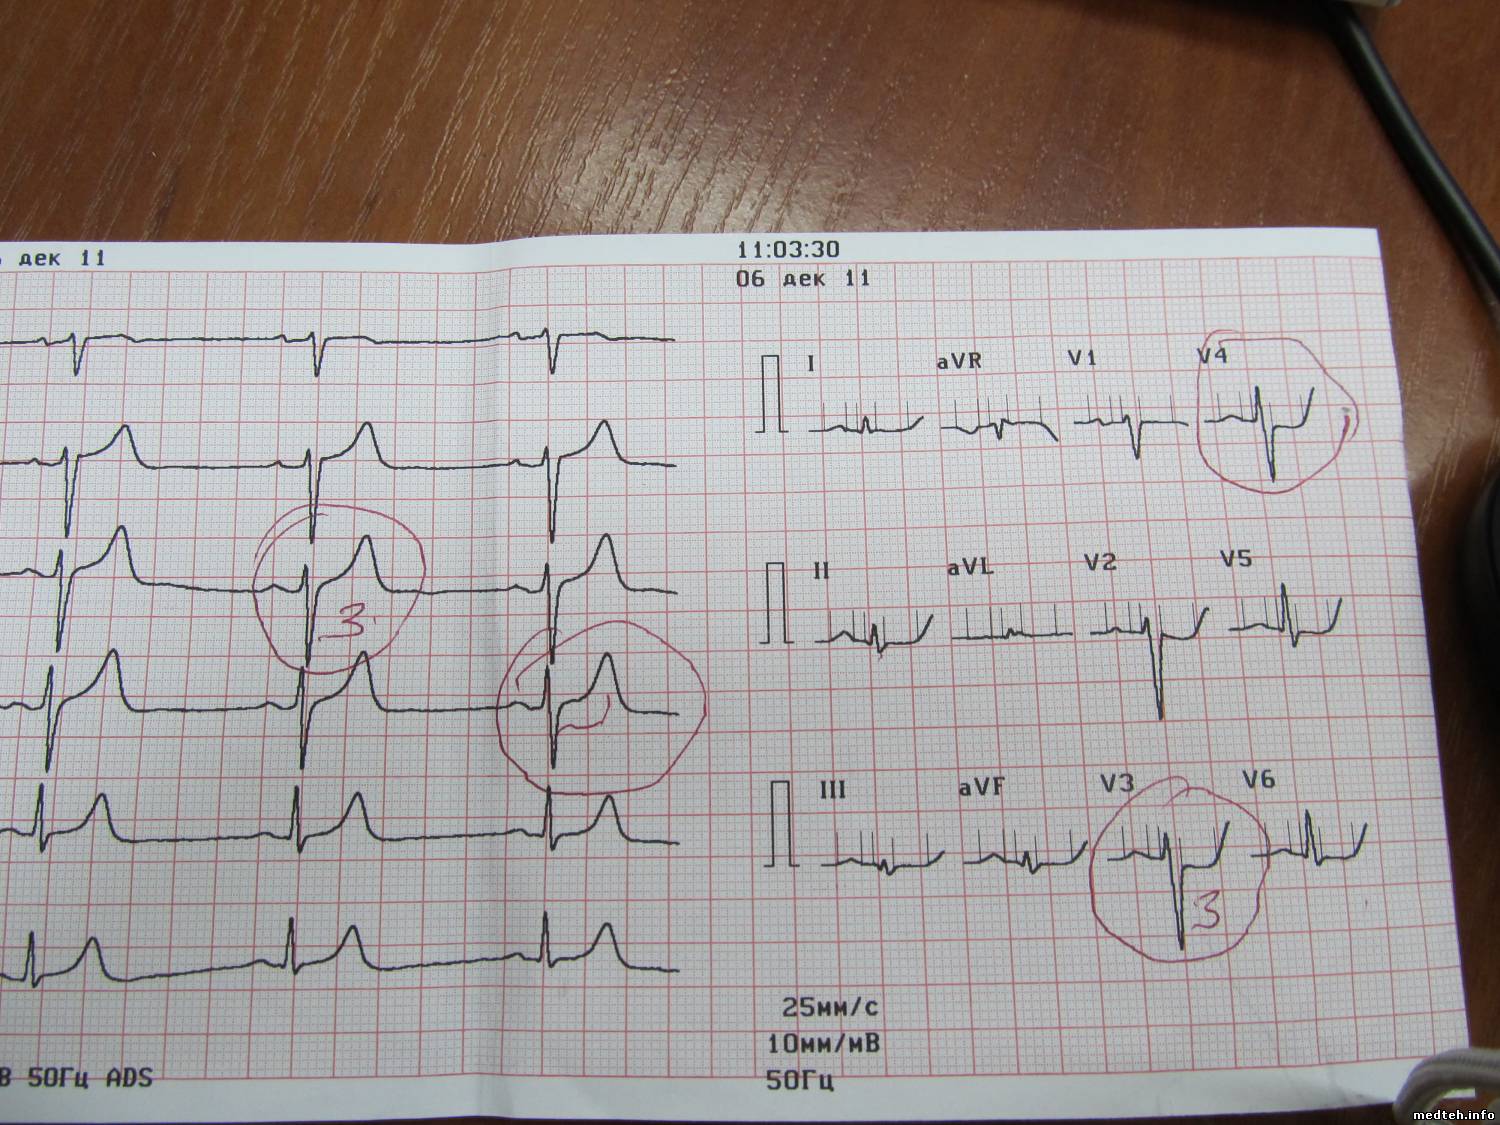 дек 11
11:03:30
06 дек 11
I aVR V1 V4
II aVL V2 V5
3
III aVF V3 V6
3
25мм/с
10мм/мВ
В 50Гц ADS
50Гц
medteh.info